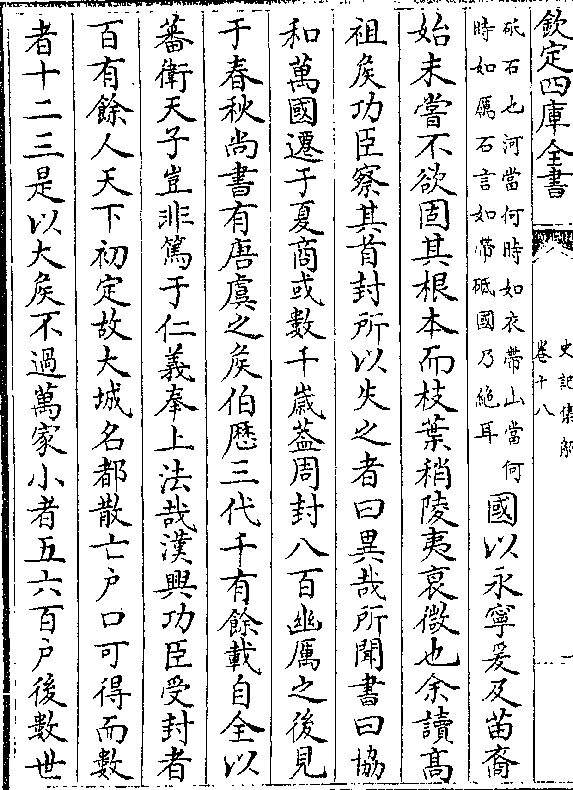 欽定四庫全書
史記集解
卷十八
一
砥石也河當何時如衣帶山當何
時如厲石言如帶砥國乃絶耳
國以永寧爰及苗裔
始未嘗不欲固其根本而枝葉稍陵夷衰微也余讀髙
祖矦功臣察其首封所以失之者曰異哉所聞書曰協
和萬國遷于夏商或數千歲葢周封八百幽厲之後見
于春秋尚書有唐虞之矦伯歴三代千有餘載自全以
蕃衛天子豈非篤于仁義奉上法哉漢興功臣受封者
百有餘人天下初定故大城名都散亡户口可得而數
者十二三是以大矦不過萬家小者五六百户後數世